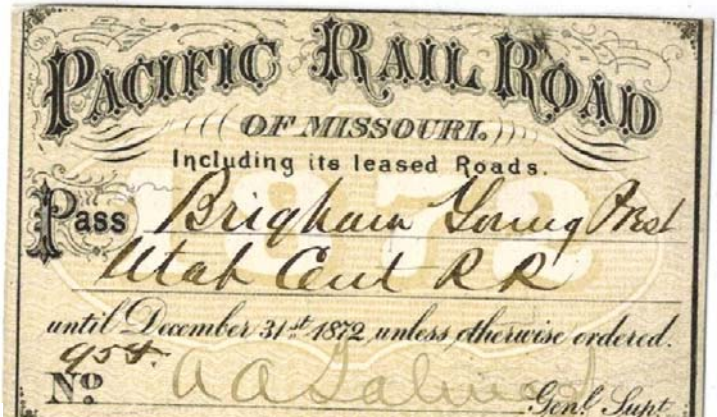 PACIFIC RAIL ROAD
OF MISSOURI.
Including its leased Roads.
1872
Pass Brigham Young Prest
Utah Cent R R
until December 31st 1872 unless otherwise ordered.
No. 954. A A Talmage
Genl. Supt.